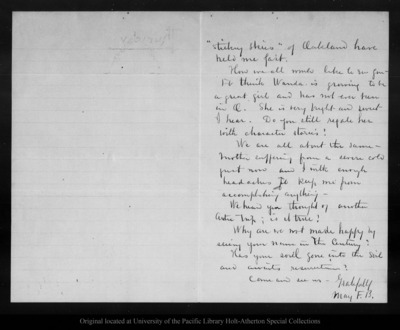 "sticky skies" of Oakland have
held me fast.
How we all would like to see you
To think Wanda is growing to be
a great girl and has not ever been
in O. She is very bright and sweet
I hear. Do you still regale her
with character stories?
We are all about the same -
Mother suffering from a severe cold
just now and I with enough
headaches to keep me from
accomplishing anything -
We hear you thought of another
Arctic trip; is it true?
Why are we not made happy by
seeing your name in The Century?
Has your soul gone into the soil
and awaits resurrection?
Come and see us - Gratefully
May F. B.
Original located at University of the Pacific Library Holt-Atherton Special Collections